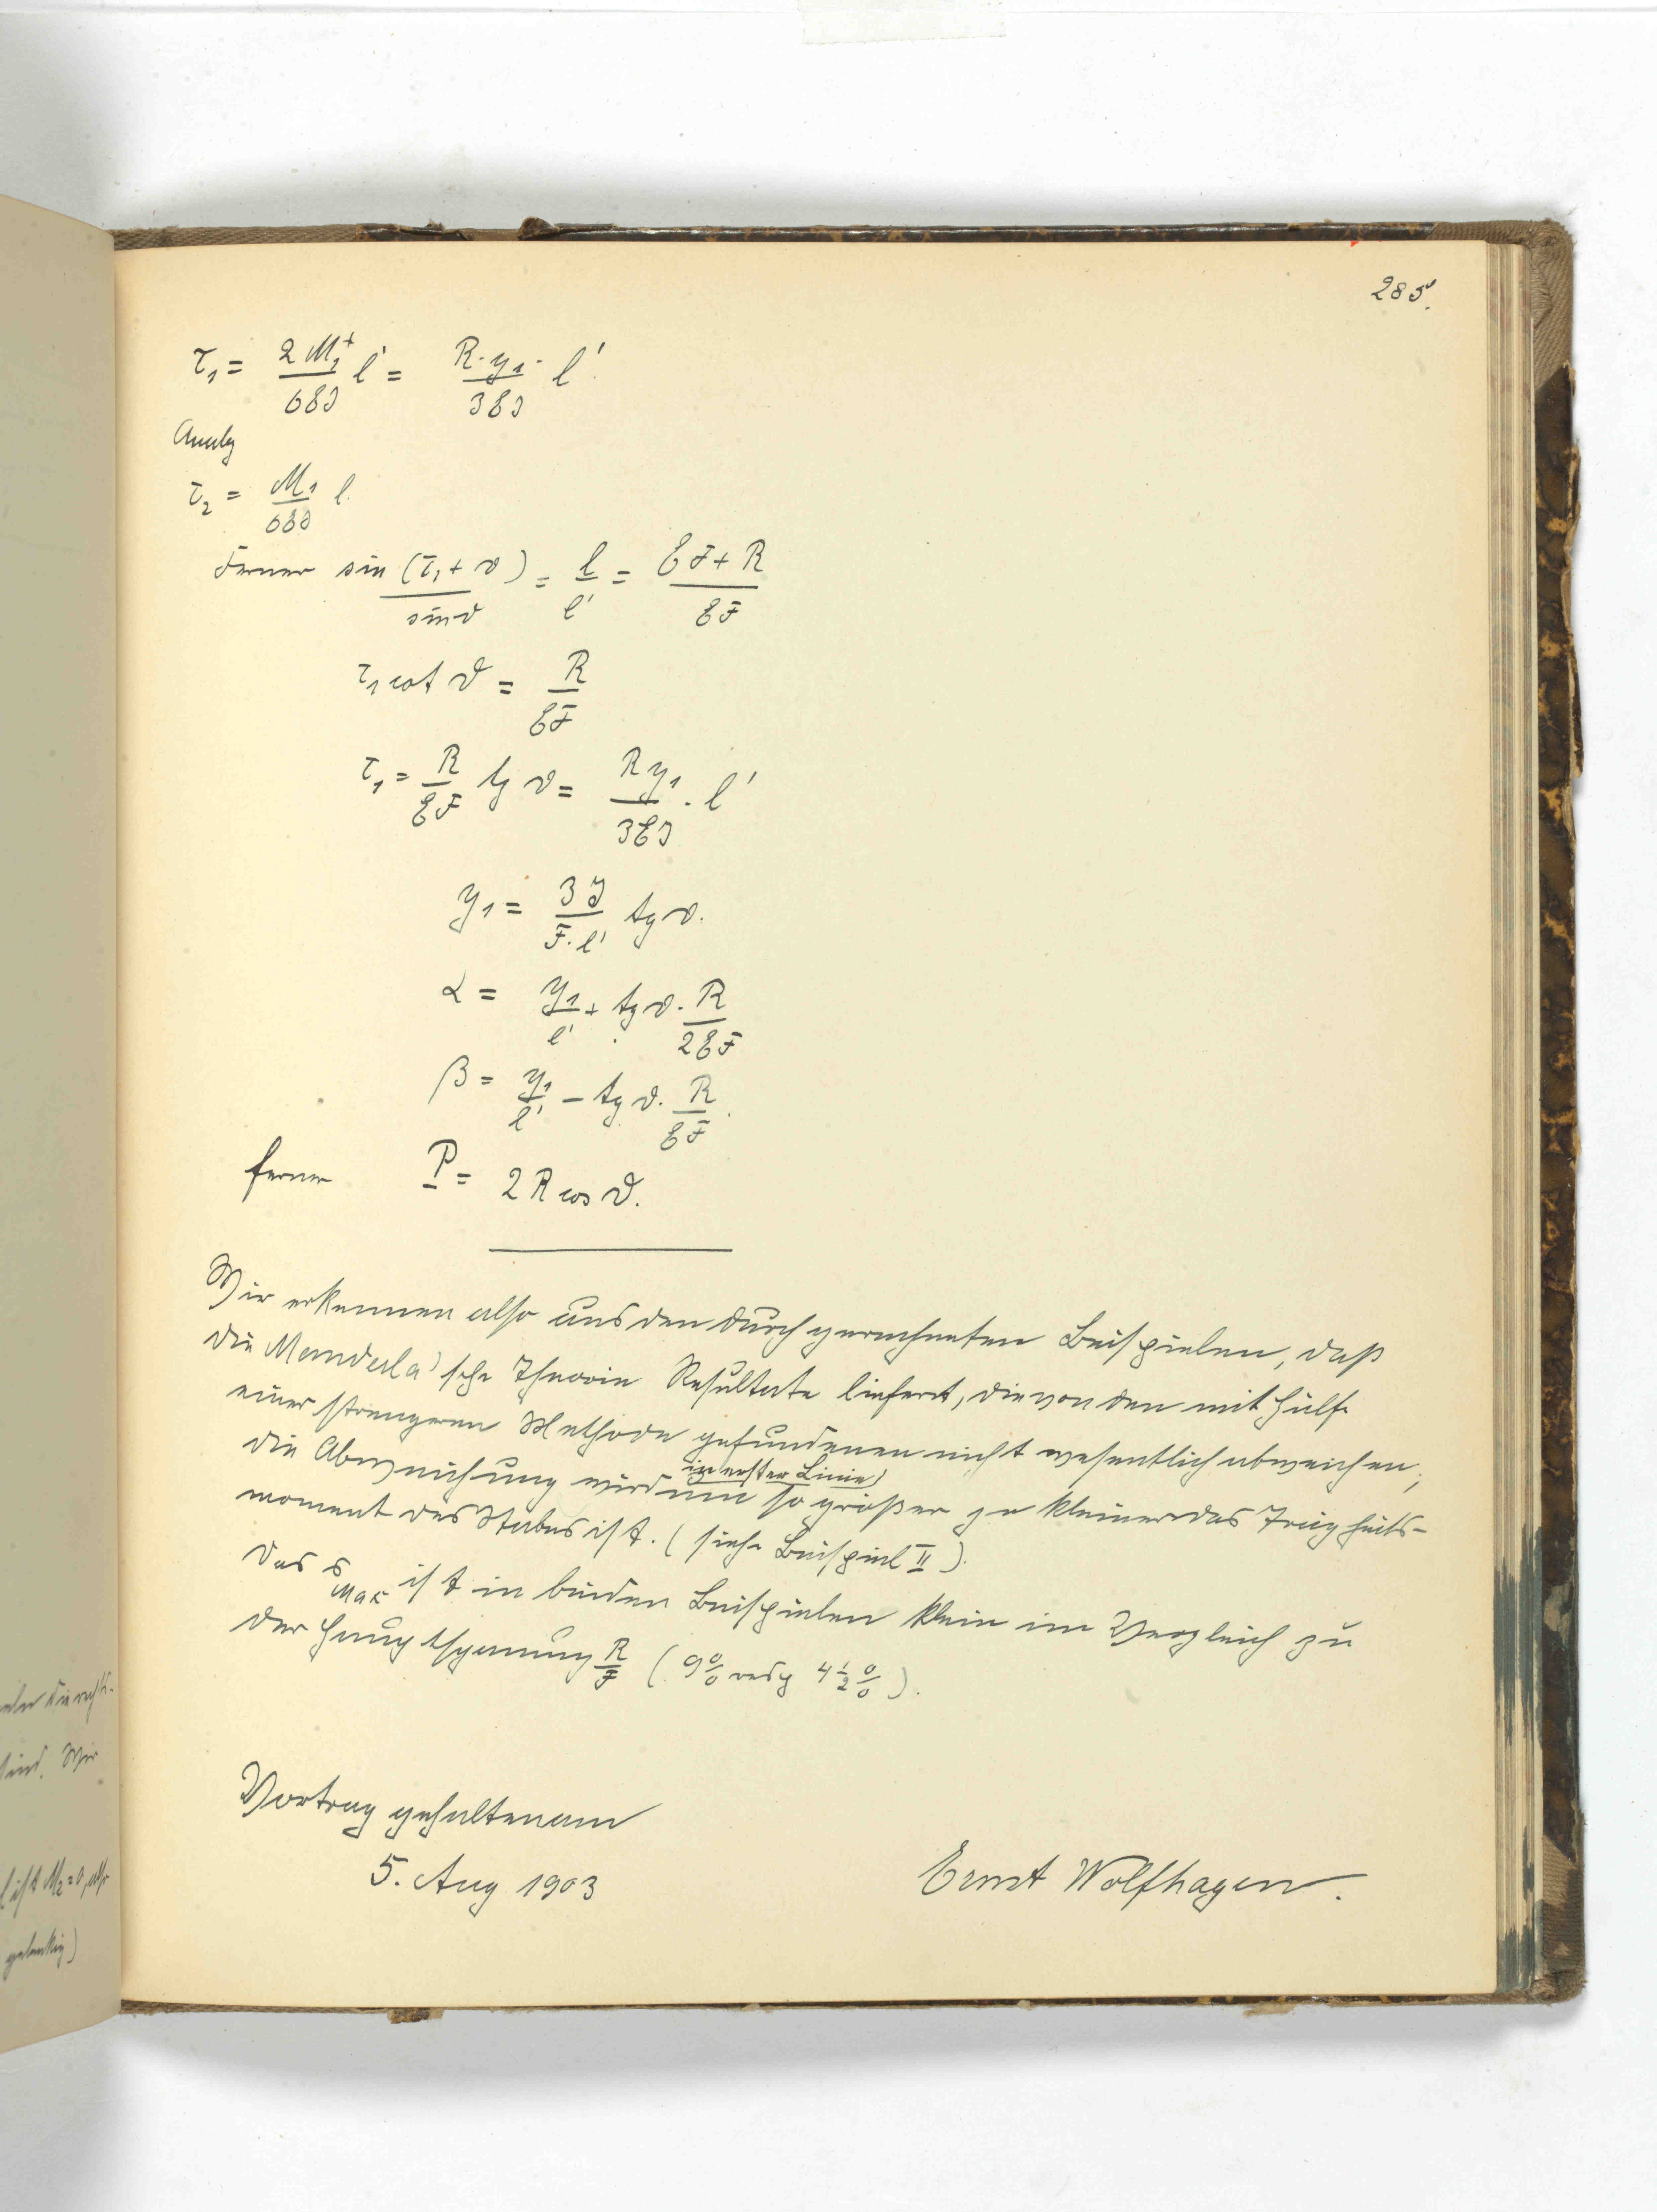 285.
τ₁ = 2M₁⁺/6EJ l' = R·y₁·/3EJ l'.
Analog
τ₂ = M₁/6EJ l.
Ferner sin(τ₁+ϑ)/sinϑ = l/l' = EF+R/EF
τ₁ cot ϑ = R/EF
τ₁ = R/EF tg ϑ = Ry₁/3EJ · l'
y₁ = 3J/F·l' tg ϑ.
α = y₁/l' + tg ϑ · R/2EF
β = y₁/l' − tg ϑ. R/EF.
ferner P = 2R cos ϑ.
Wir erkennen also aus den durchgerechneten Beispielen, daß
die Manderla'sche Theorie Resultate liefert, die von den mit Hülfe
einer strengeren Methode gefundenen nicht wesentlich abweichen;
in erster Linie
die Abweichung wird um so größer je kleiner das Trägheits-
moment des Stabes ist. (siehe Beispiel II).
Das σ Max ist in beiden Beispielen klein im Vergleich zu
der Hauptspannung R/F (9% resp 4½%).
Vortrag gehalten am
5. Aug 1903
Ernst Wolfhagen.
aber die
sind. Wir
ist M₂=0, also
gelenkig)